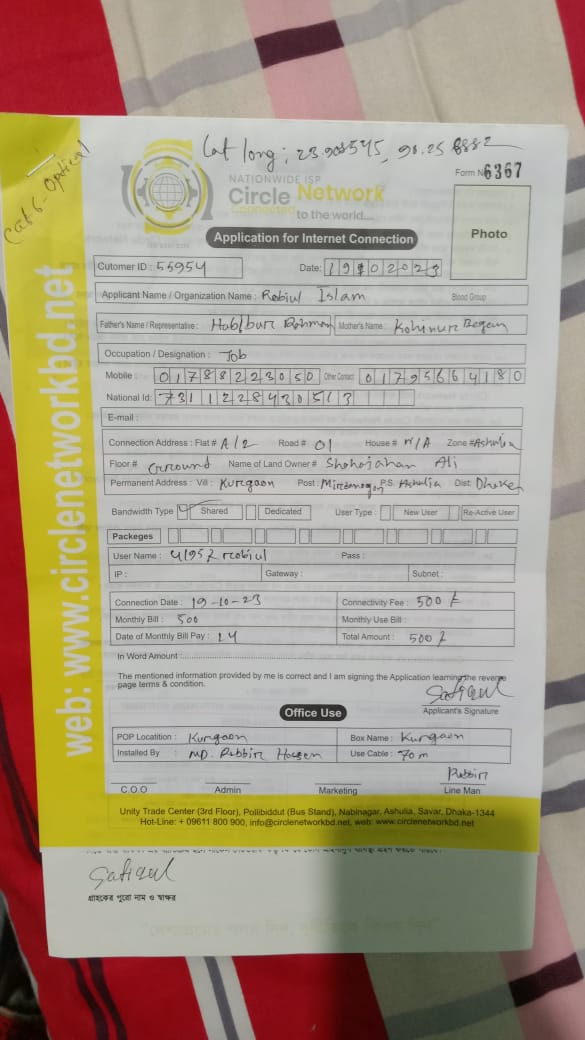 Cat6-Optical
Lat long; 23.908545, 90.25 8882
NATIONWIDE ISP
Circle Network
Connected to the world....
Form No 6367
Photo
Application for Internet Connection
Cutomer ID : 55954 Date: 19102023
Applicant Name / Organization Name : Robiul Islam Blood Group
Father's Name / Representative : Habibur Rohman Mother's Name : Kohinur Begam
Occupation / Designation : Job
Mobile 01788223050 Other Contact 01795664180
National Id: 7311228430513
E-mail :
Connection Address : Flat # A/2 Road # 01 House # N/A Zone # Ashulia
Floor # Ground Name of Land Owner # Shohajahan Ali
Permanent Address : Vill : Kurgaon Post : P.S. Ashulia Dist: Dhaka
Bandwidth Type ✓ Shared Dedicated User Type : New User Re-Active User
Packeges
User Name : Pass :
IP : Gateway : Subnet :
Connection Date : 19-10-23 Connectivity Fee : 500 ৳
Monthly Bill : 500 Monthly Use Bill :
Date of Monthly Bill Pay : 14 Total Amount : 500 ৳
In Word Amount
The mentioned information provided by me is correct and I am signing the Application learning the reverse
page terms & condition.
Safiqul
Applicant's Signature
Office Use
POP Locatition : Kurgaon Box Name : Kurgaon
Installed By : MD. Robbin Hossen Use Cable : 70m
Robbin
C.O.O Admin Marketing Line Man
Unity Trade Center (3rd Floor), Pollibiddut (Bus Stand), Nabinagar, Ashulia, Savar, Dhaka-1344
Hot-Line: + 09611 800 900, info@circlenetworkbd.net, web: www.circlenetworkbd.net
web: www.circlenetworkbd.net
Safiqul
গ্রাহকের পুরো নাম ও স্বাক্ষর